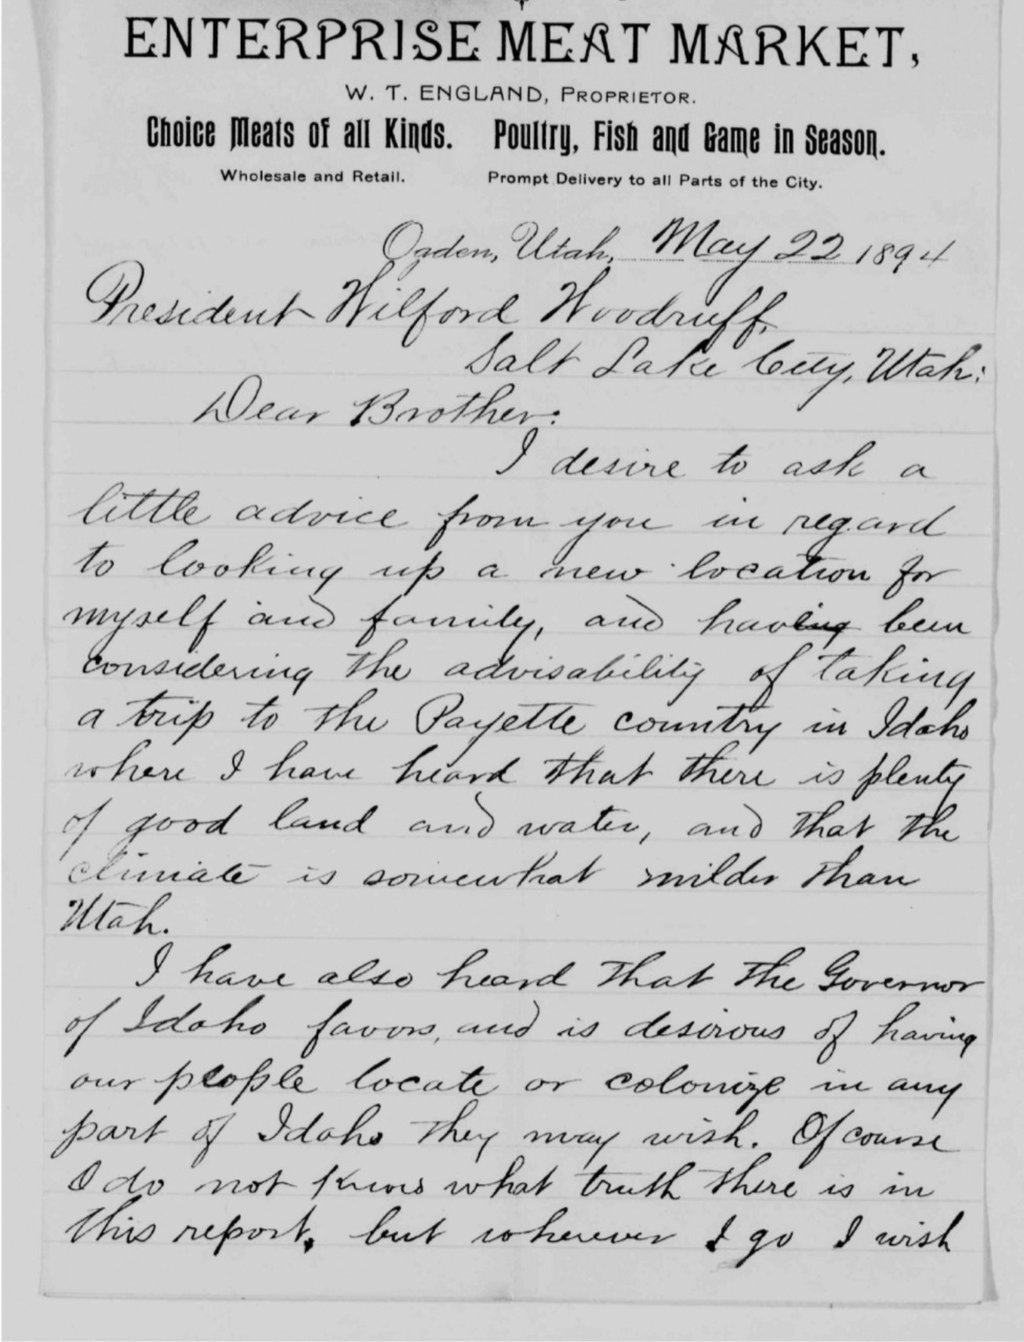 ENTERPRISE MEAT MARKET,
W. T. ENGLAND, PROPRIETOR.
Choice Meats of all Kinds. Poultry, Fish and Game in Season.
Wholesale and Retail. Prompt Delivery to all Parts of the City.
Ogden, Utah, May 22 1894
President Wilford Woodruff,
Salt Lake City, Utah:
Dear Brother:
I desire to ask a
little advice from you in regard
to looking up a new location for
myself and family, and having been
considering the advisability of taking
a trip to the Payette country in Idaho
where I have heard that there is plenty
of good land and water, and that the
climate is somewhat milder than
Utah.
I have also heard that the Governor
of Idaho favors, and is desirous of having
our people locate or colonize in any
part of Idaho they may wish. Of course
I do not know what truth there is in
this report, but wherever I go I wish